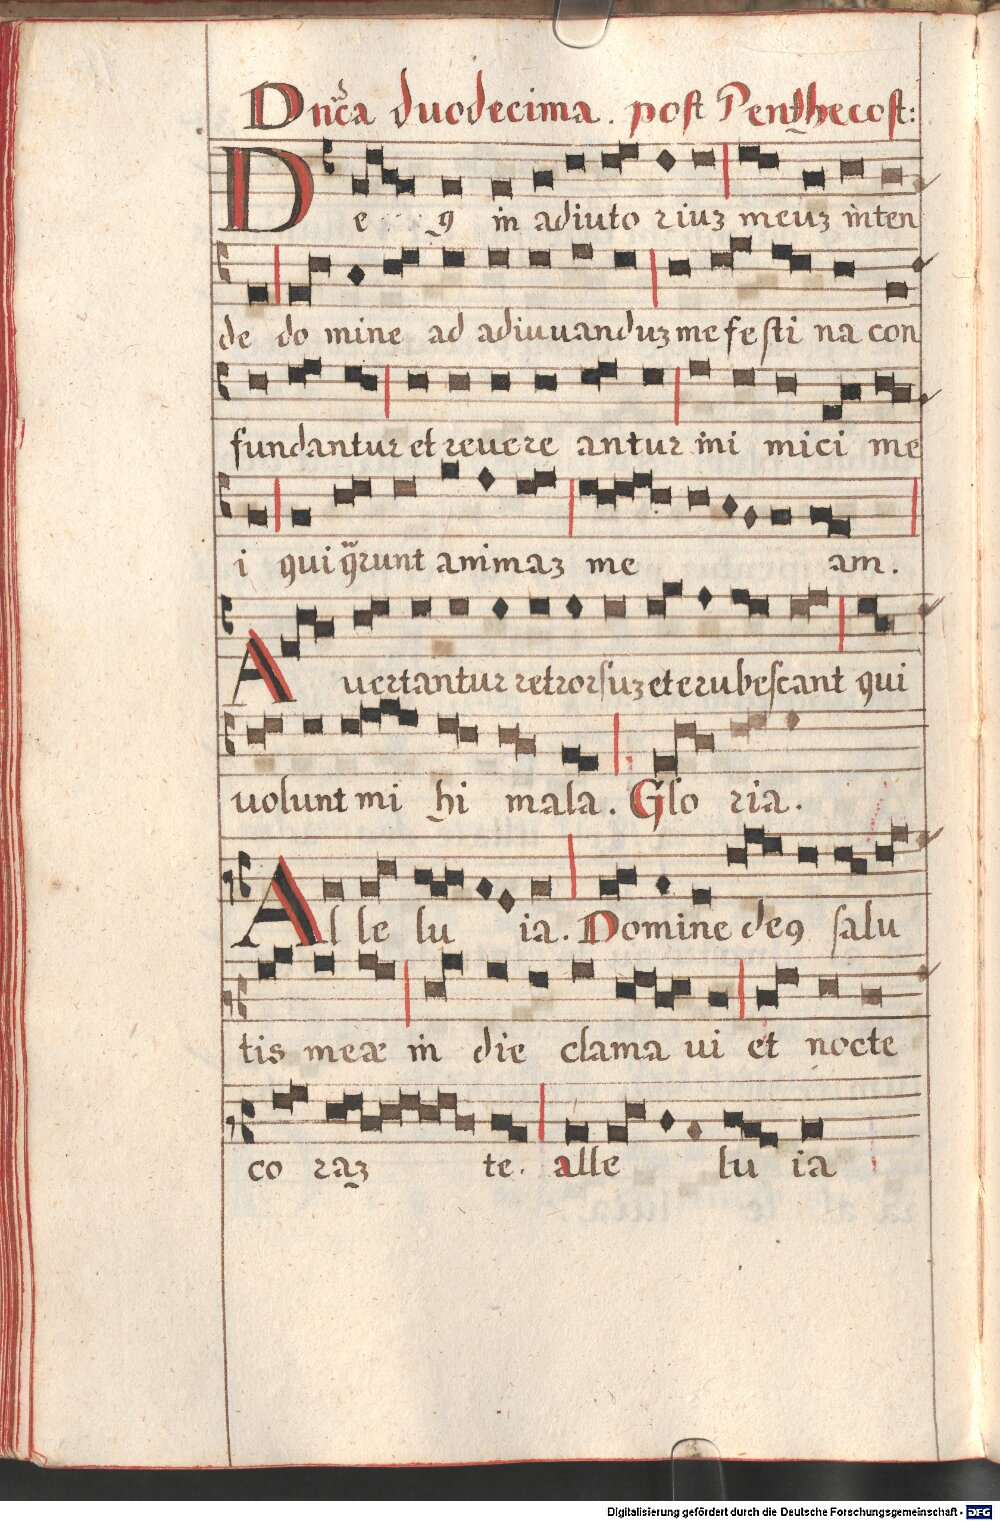 Dnc̃a duodecima. post Penthecost:
De 9 in adiuto riuꝫ meuꝫ inten
de do mine ad adiuuanduꝫ me festi na con
fundantur et reuere antur ini mici me
i qui q̃runt animaꝫ me am.
Auertantur retrorsuꝫ et erubescant qui
uolunt mi hi mala. Glo ria.
Al le lu ia. Domine de9 salu
tis meæ in die clama ui et nocte
co raꝫ te. alle lu ia
Digitalisierung gefördert durch die Deutsche Forschungsgemeinschaft - DFG